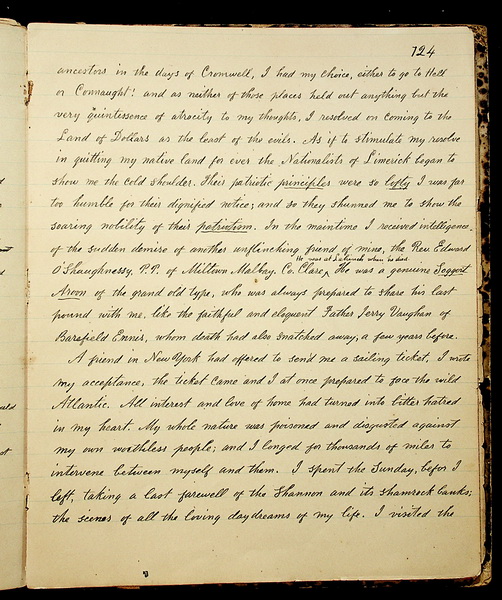 124
ancestors in the days of Cromwell, I had my choice, either to go to Hell
or Connaught! and as neither of those places held out anything but the
very quintessence of atrocity to my thoughts, I resolved on coming to the
Land of Dollars as the least of the evils. As if to stimulate my resolve
in quitting my native land for ever the Nationalists of Limerick began to
show me the cold shoulder. Their patriotic principles were so lofty I was far
too humble for their dignified notice; and so they shunned me to show the
soaring nobility of their patriotism. In the maintime I received intelligence
of the sudden demise of another unflinching friend of mine, the Rev. Edward
He was at when he died
O'Shaughnessy, P.P. of Milltown Malbay, Co. Clare, He was a genuine Soggart
Aroon of the grand old type, who was always prepared to share his last
pound with me. like the faithful and eloquent Father Jerry Vaughan of
Barefield Ennis, whom death had also snatched away, a few years before.
A friend in New York had offered to send me a sailing ticket, I wrote
my acceptance, the ticket came and I at once prepared to face the wild
Atlantic. All interest and love of home had turned into bitter hatred
in my heart. My whole nature was poisoned and disgusted against
my own worthless people; and I longed for thousands of miles to
intervene between myself and them. I spent the Sunday, befor I
left, taking a last farewell of the Shannon and its shamrock banks;
the scenes of all the loving daydreams of my life. I visited the